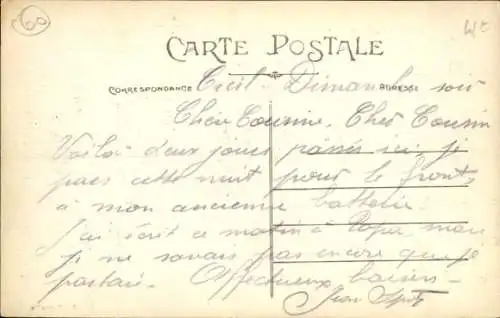 60
CARTE POSTALE
CORRESPONDANCE
ADRESSE
Creil - Dimanche soir
Chère Cousine, Cher Cousin
Voilà deux jours passés ici, je
pars cette nuit pour le front,
à mon ancienne batterie
J'ai écrit ce matin à Papa mais
je ne savais pas encore que je
partais. Affectueux baisers -
Jean